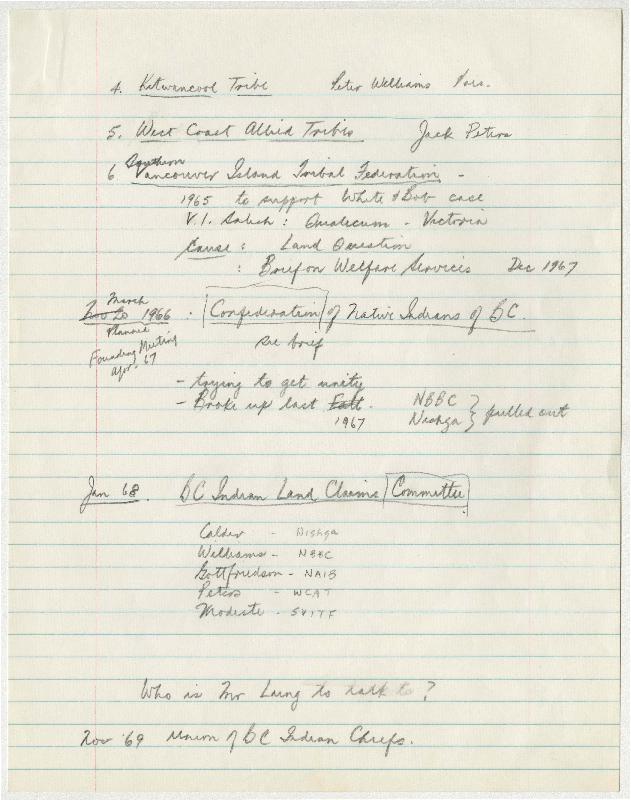 4. Kitwancool Tribe Peter Williams Pres.
5. West Coast Allied Tribes Jack Peters
Southern
6 Vancouver Island Tribal Federation -
1965 to support White & Bob case
V.I. Salish: Qualicum - Victoria
Cause: Land Question
: Brief on Welfare Services Dec 1967
March
Nov 20 1966: Confederation of Native Indians of BC.
Planned
Founding Meeting
Apr. 67
see brief
- trying to get unity
- Broke up last Fall. NBBC
1967 Nishga } pulled out
Jan 68. BC Indian Land Claims Committee
Calder - Nishga
Williams - NBBC
Gottfriedson - NAIB
Peters - WCAT
Modeste - SVITF
Who is Mr Laing to talk to?
Nov '69 Union of BC Indian Chiefs.